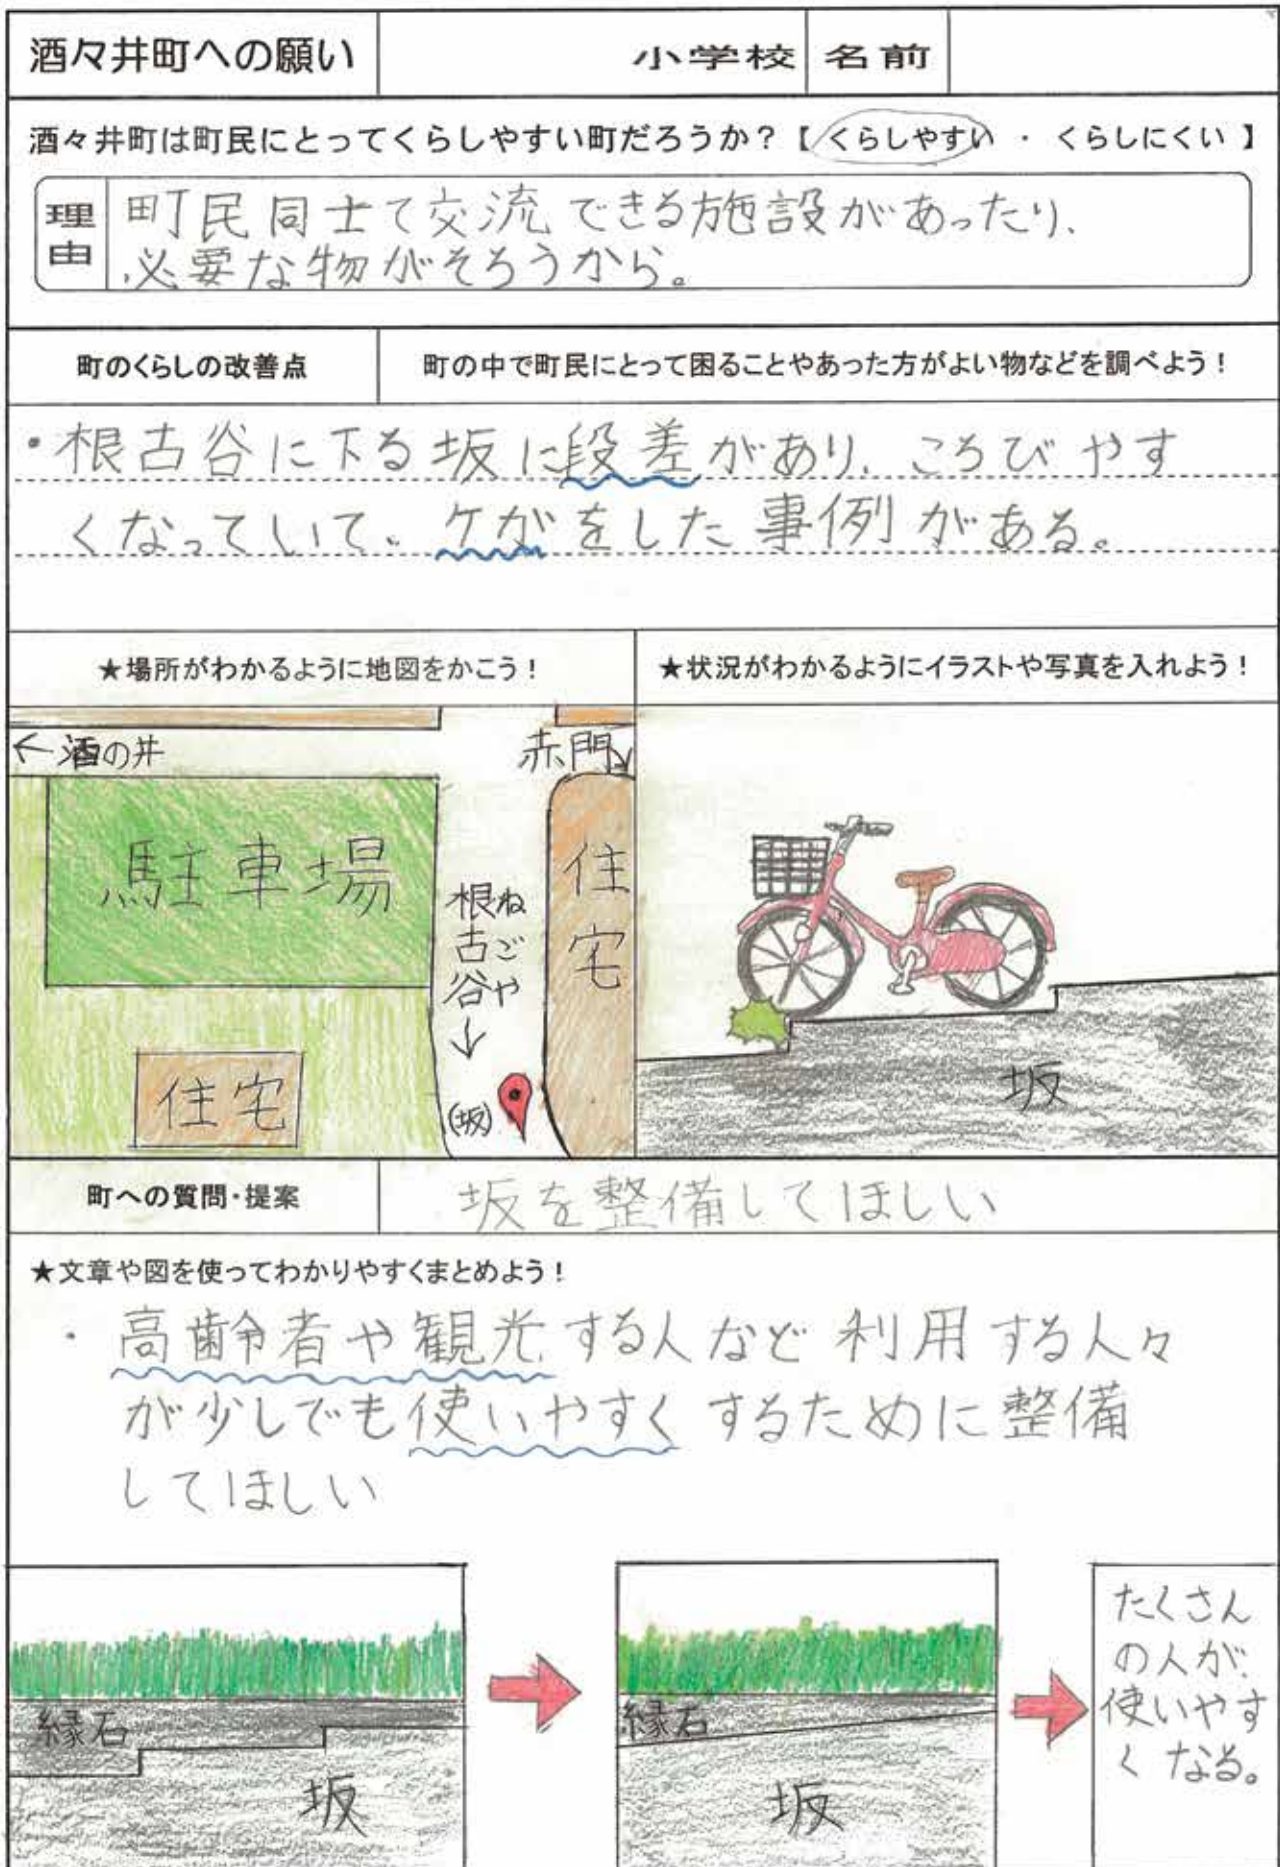 酒々井町への願い 小学校 名前
酒々井町は町民にとってくらしやすい町だろうか？【 くらしやすい ・ くらしにくい 】
理由
町民同士で交流できる施設があったり、
必要な物がそろうから。
町のくらしの改善点 町の中で町民にとって困ることやあった方がよい物などを調べよう！
・根古谷に下る坂に段差があり、ころびやす
くなっていて、ケガをした事例がある。
★場所がわかるように地図をかこう！
←酒の井
赤門
駐車場
住宅
根古谷
ねごや
↓
(坂)
住宅
★状況がわかるようにイラストや写真を入れよう！
坂
町への質問・提案 坂を整備してほしい
★文章や図を使ってわかりやすくまとめよう！
・高齢者や観光する人など利用する人々
が少しでも使いやすくするために整備
してほしい
縁石
坂
縁石
坂
たくさん
の人が、
使いやす
くなる。